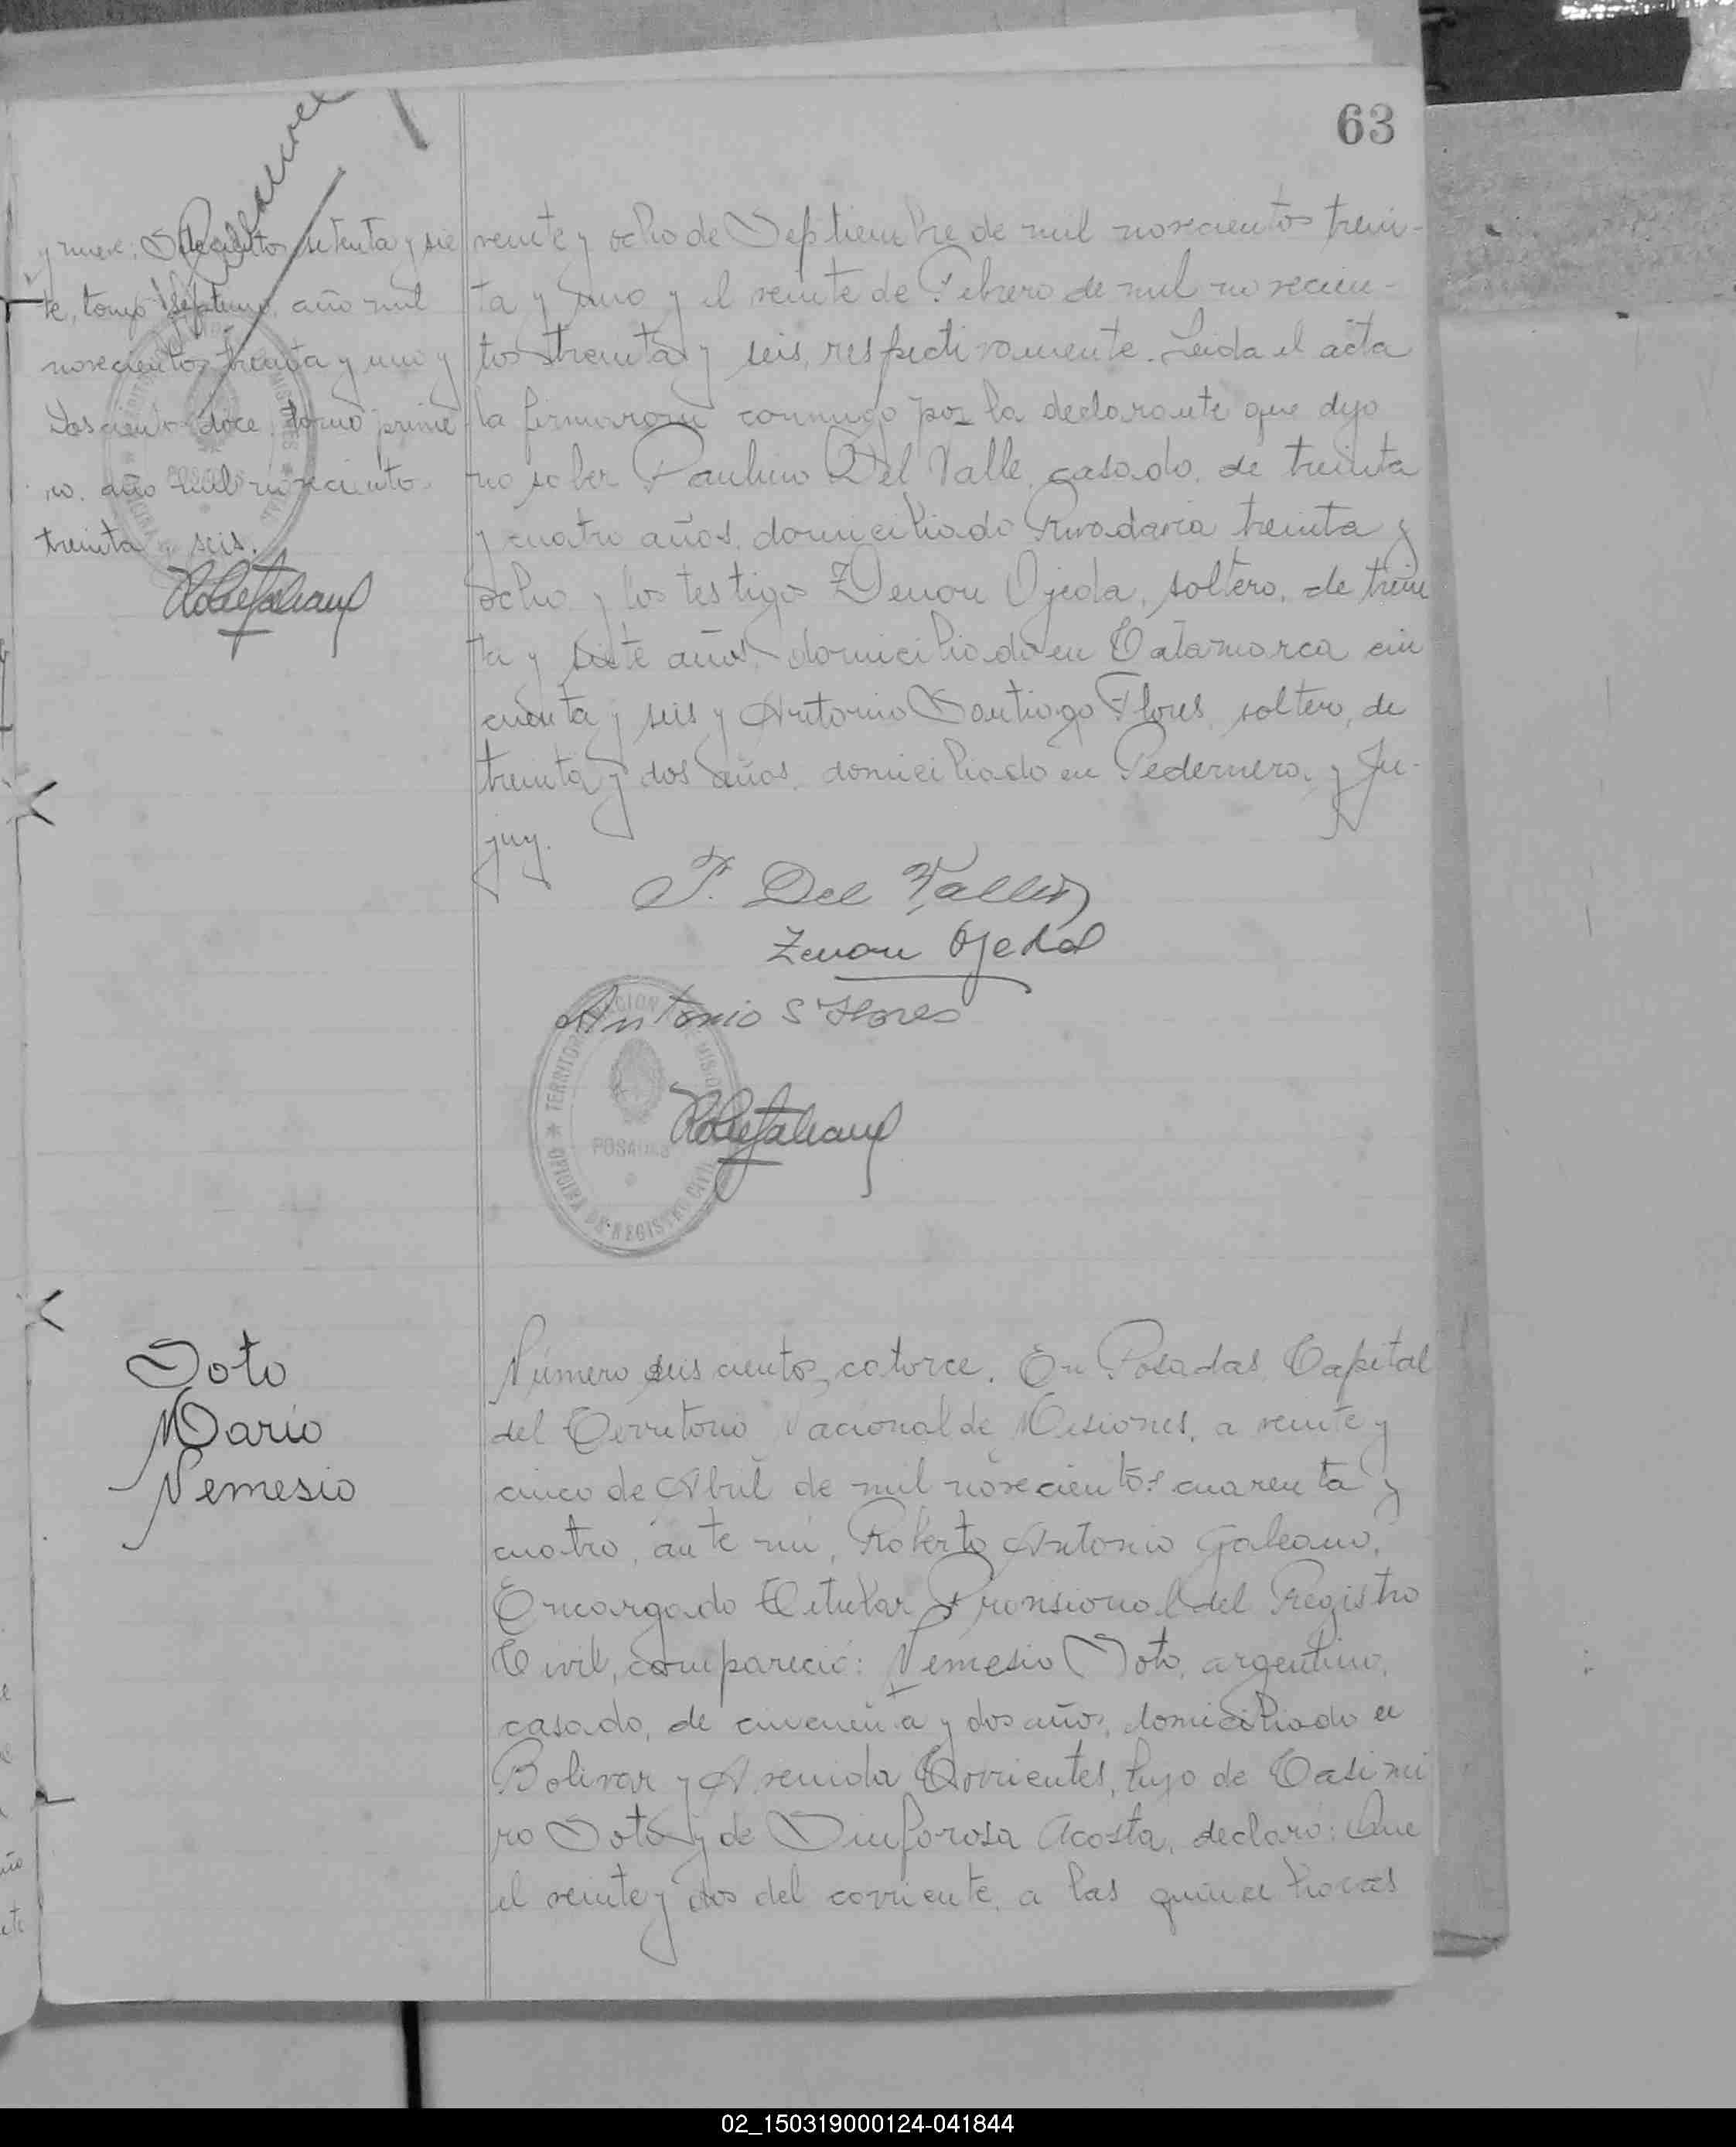 63
y nueve; Setecientos setenta y sie
te, tomo Septimo, año mil
novecientos treinta y uno y
Doscientos doce, tomo prime
ro, año mil novecientos
treinta y seis.
veinte y ocho de Septiembre de mil novecientos trein-
ta y uno y el veinte de Febrero de mil novecien-
tos treinta y seis, respectivamente. Leida el acta
la firmaron conmigo por la declarante que dijo
no saber Paulino Del Valle, casado, de treinta
y cuatro años, domiciliado Rivadavia treinta y
ocho y los testigos Zenon Ojeda, soltero, de trein
ta y siete años, domiciliado en Catamarca cin
cuenta y seis y Antonio Santiago Flores, soltero, de
treinta y dos años, domiciliado en Pedernera y Ju-
juy.
P. Del Valle
Zenon Ojeda
Antonio S Flores
TERRITORIO NACIONAL DE MISIONES
POSADAS
OFICINA DE REGISTRO CIVIL
Soto
Mario
Nemesio
Número seiscientos catorce. En Posadas, Capital
del Territorio Nacional de Misiones, a veinte y
cinco de Abril de mil novecientos cuarenta y
cuatro, ante mi, Roberto Antonio Galeano,
Encargado Titular Provisional del Registro
Civil, compareció: Nemesio Soto, argentino,
casado, de cincuenta y dos años, domiciliado en
Bolivar y Avenida Corrientes, hijo de Casimi
ro Soto y de Sinforosa Acosta, declaró: Que
el veinte y dos del corriente, a las quince horas
02_150319000124-041844